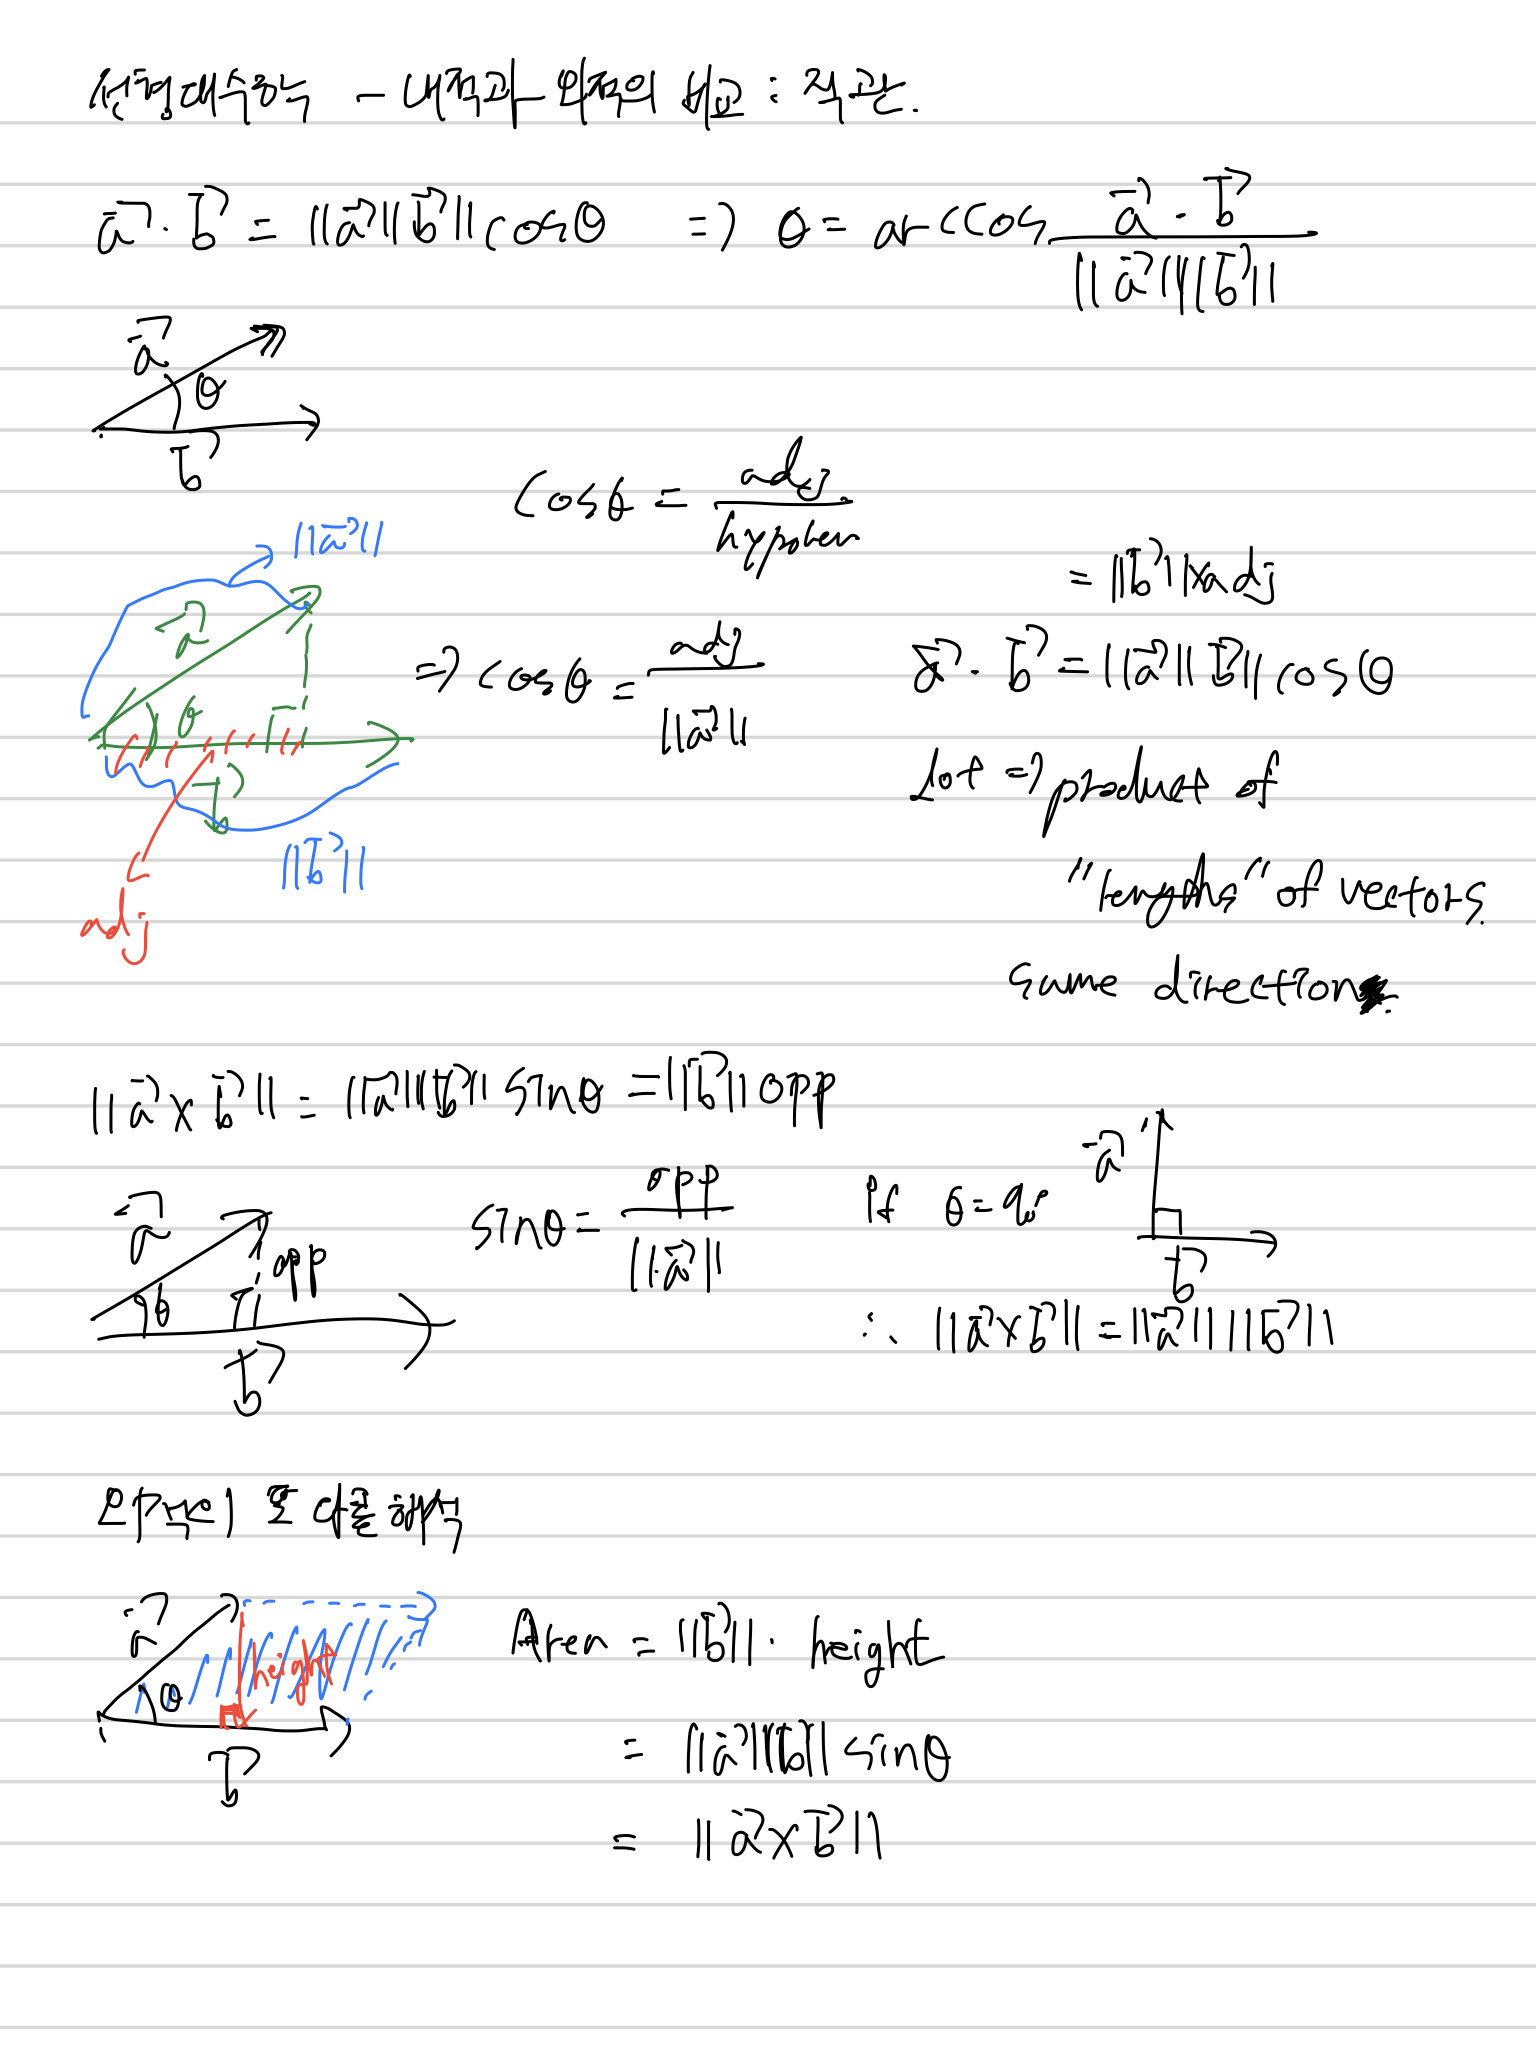 선형대수학 - 내적과 외적의 비교 : 직관.
a⃗ · b⃗ = ||a⃗||||b⃗|| cosθ ⇒ θ = arccos (a⃗ · b⃗) / (||a⃗||||b⃗||)
a⃗ θ
b⃗
cosθ = adj. / hypoten
||a⃗||
= ||b⃗|| × adj
a⃗ θ
⇒ cosθ = adj / ||a⃗||
a⃗ · b⃗ = ||a⃗||||b⃗|| cosθ
b⃗
dot ⇒ product of
||b⃗||
"lengths" of vectors.
adj
same direction
||a⃗ × b⃗|| = ||a⃗||||b⃗|| sinθ = ||b⃗|| opp
a⃗ θ opp
b⃗
sinθ = opp / ||a⃗||
if θ = 90°
a⃗
b⃗
∴ ||a⃗ × b⃗|| = ||a⃗||||b⃗||
외적의 또 다른 해석
a⃗ θ height
b⃗
Area = ||b⃗|| · height
= ||a⃗||||b⃗|| sinθ
= ||a⃗ × b⃗||